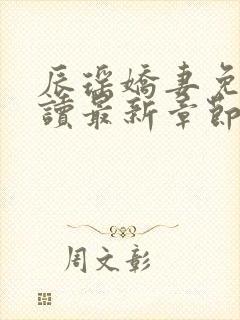 辰瑶嬌妻免
讀最新章節
周文彰